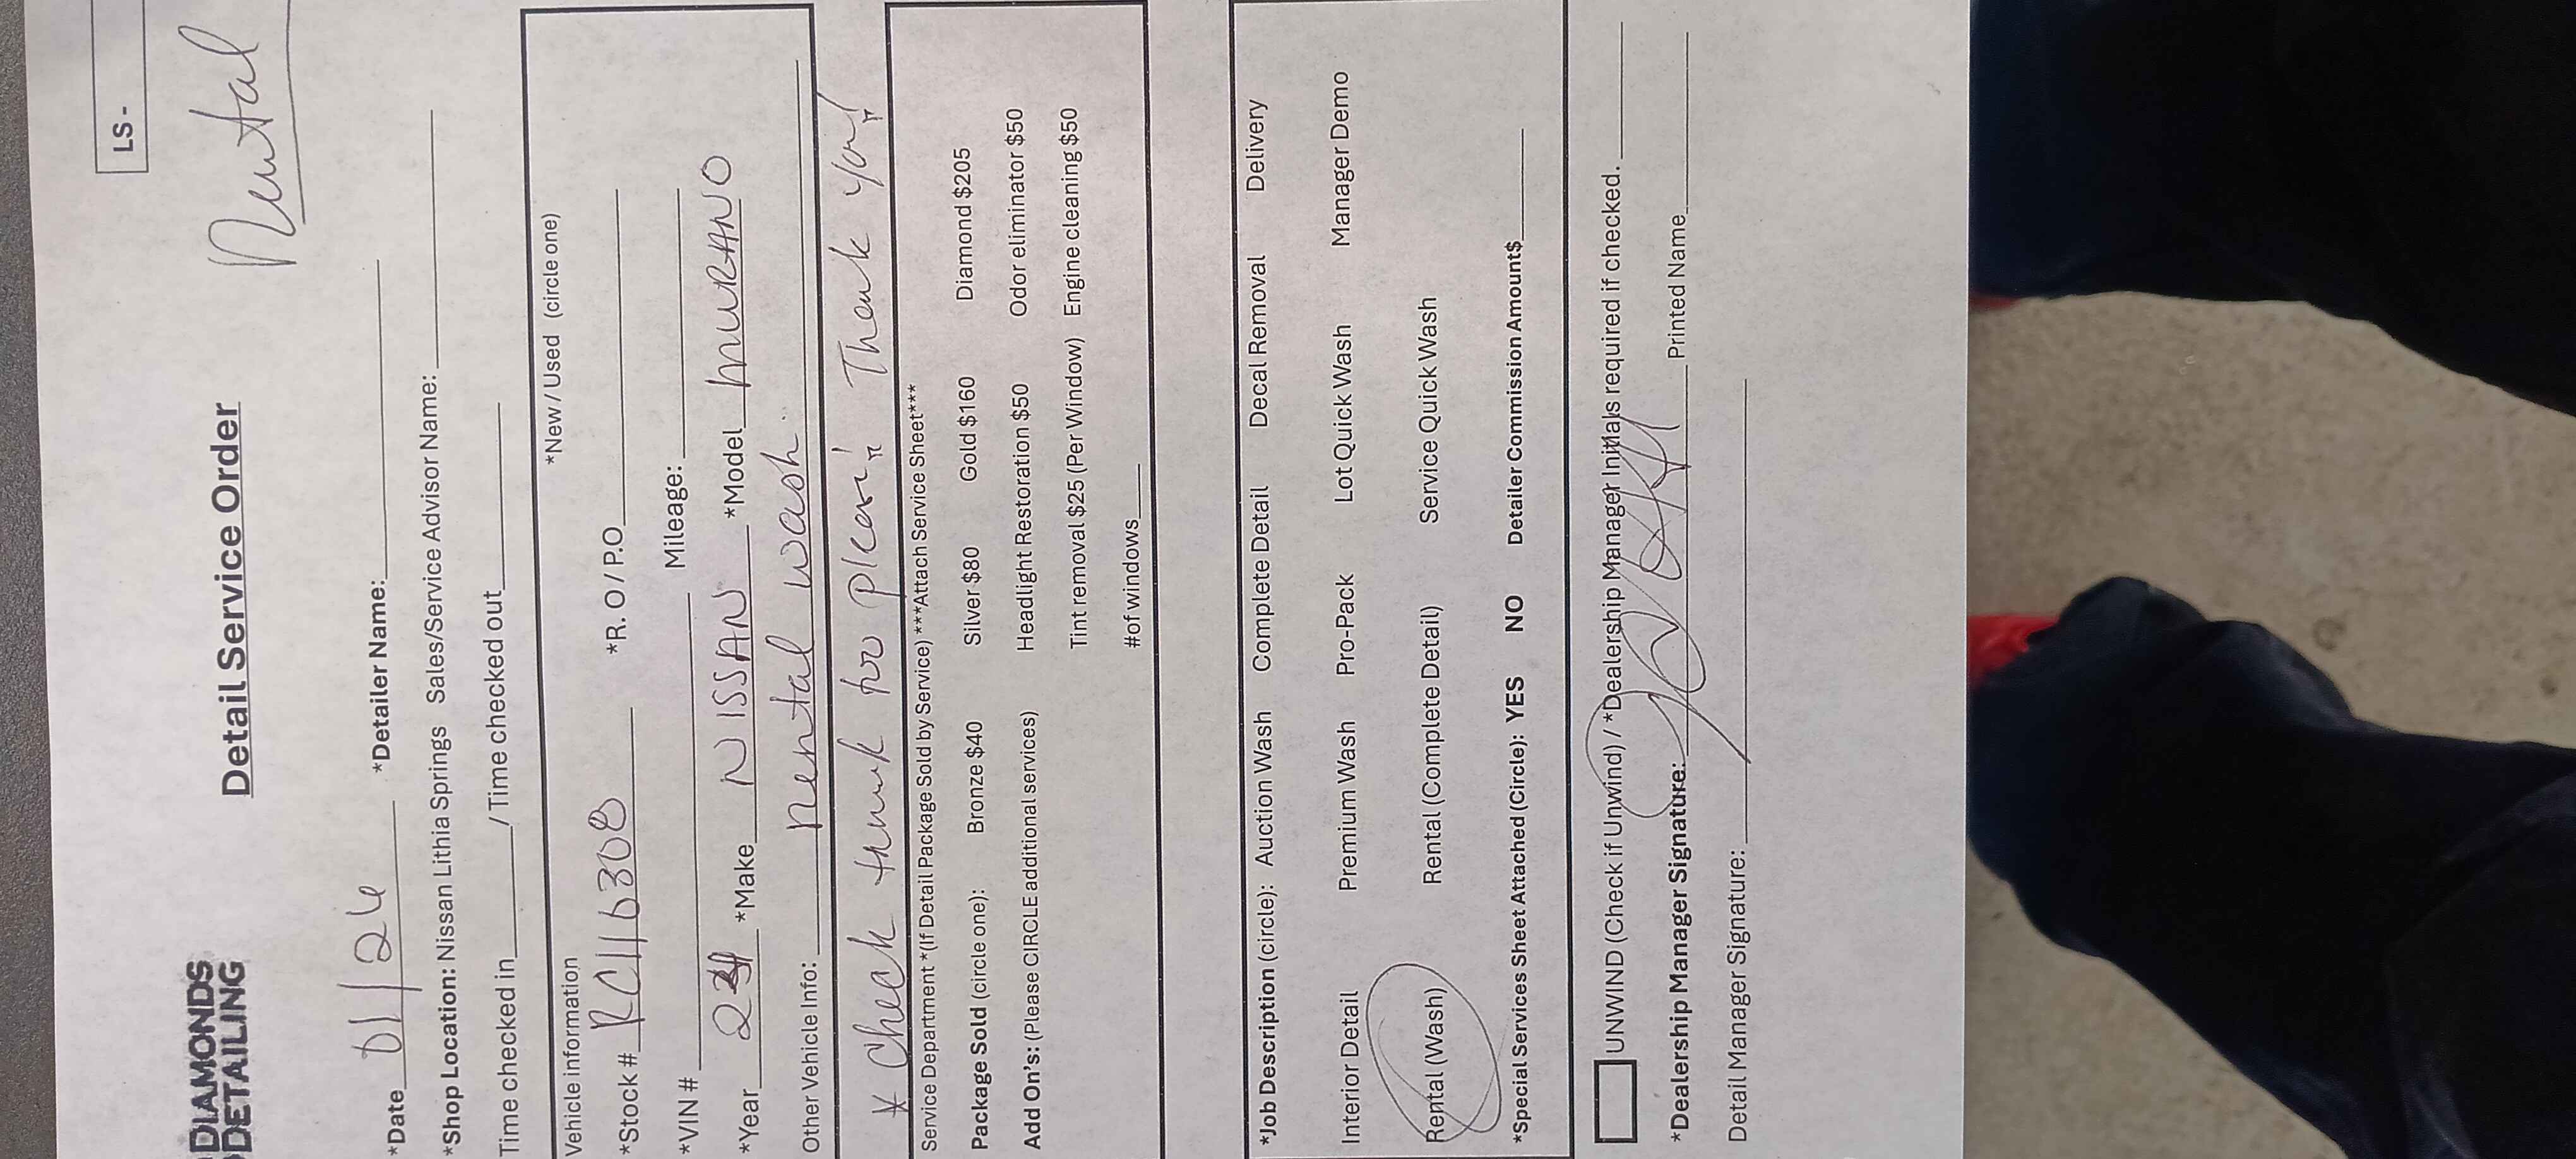 LS -
DIAMONDS
DETAILING
Detail Service Order
Rental
*Date 01/26 *Detailer Name:
*Shop Location: Nissan Lithia Springs Sales/Service Advisor Name:
Time checked in / Time checked out
Vehicle information *New / Used (circle one)
*Stock # RC116308 *R. O / P.O
*VIN # Mileage:
*Year *Make NISSAN *Model MURANO
Other Vehicle Info: Rental wash.
* Check trunk too please! Thank you!
Service Department *(If Detail Package Sold by Service) ***Attach Service Sheet***
Package Sold (circle one): Bronze $40 Silver $80 Gold $160 Diamond $205
Add On's: (Please CIRCLE additional services) Headlight Restoration $50 Odor eliminator $50
Tint removal $25 (Per Window) Engine cleaning $50
#of windows
*Job Description (circle): Auction Wash Complete Detail Decal Removal Delivery
Interior Detail Premium Wash Pro-Pack Lot Quick Wash Manager Demo
Rental (Wash) Rental (Complete Detail) Service Quick Wash
*Special Services Sheet Attached (Circle): YES NO Detailer Commission Amount$
UNWIND (Check if Unwind) / *Dealership Manager Initials required if checked.
*Dealership Manager Signature: Printed Name
Detail Manager Signature: